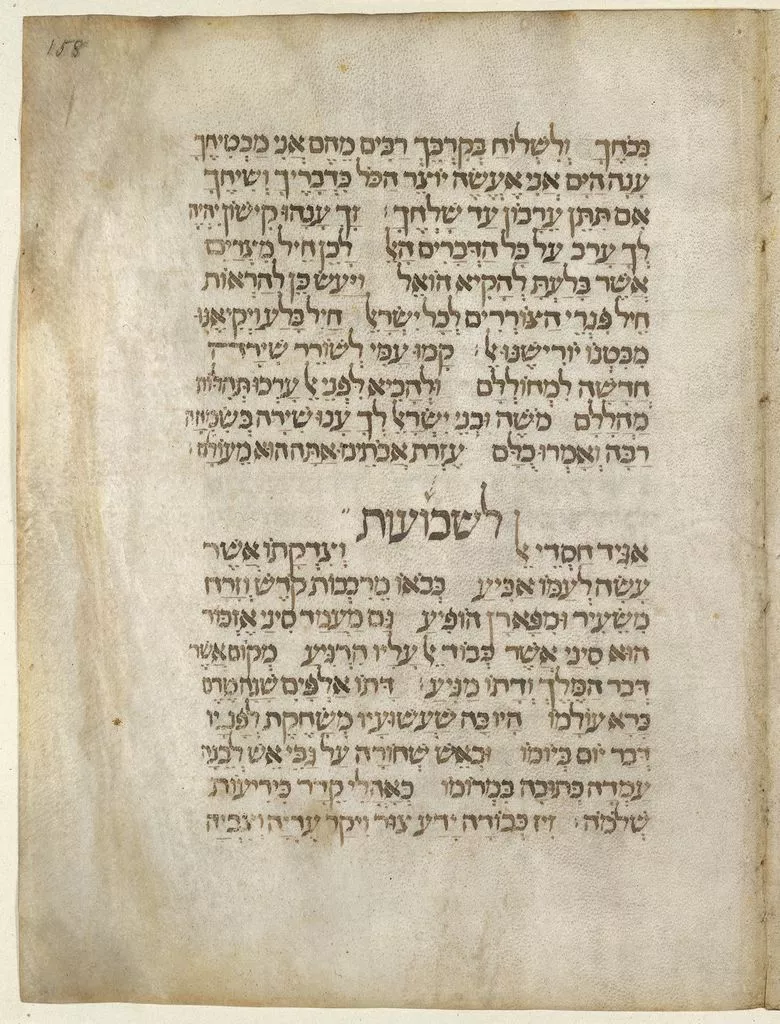 158
בכחך ולשלוח בקרבך רבים מהם אני מבטיחך
ענה הים אני אעשה יוצר הכל כדבריך ושיחך
אם תתן ערבון עד שלחך זך ענהו קישון יהיה
לך ערב על כל הדברים הא׳ לכן חיל מצרים
אשר בלעת להקיא הואל ויעש כן להראות
חיל פגרי הצוררים לכל ישראל חיל בלע ויקיאנו
מבטנו יורישנו אל קמו עמי לשורר שירה
חדשה למחוללם ולהביא לפני אל ערמו תהלות
מהללם משה ובני ישראל לך ענו שירה בשמחה
רבה ואמרו כלם עזרת אבתינו אתה הוא מעולם
לשבועות
אגיד חסדי אל וצדקתו אשר
עשה לעמו אביע בבאו מרכבות קדש וזרח
משעיר ומפארן הופיע גם מעמד סיני אזמר
הוא סיני אשר כבוד אל עליו הרגיע מקום אשר
דבר המלך ודתו מגיע דתו אלפים שנה טרם
ברא עולמו היו בה שעשועיו משחקת לפניו
דבר יום ביומו ובאש שחורה על גבי אש לבנה
עמדה כתובה במרומו כאהלי קדר כיריעות
שלמה זיו כבודה ידע צור ויקר עדיה וצביה